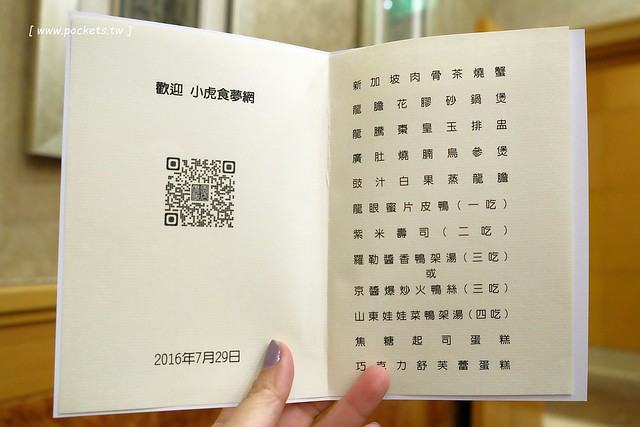 [ www.pockets.tw ]
歡迎 小虎食夢網
2016年7月29日
新加坡肉骨茶燒蟹
龍膽花膠砂鍋煲
龍騰棗皇玉排盅
廣肚燒腩烏參煲
豉汁白果蒸龍膽
龍眼蜜片皮鴨(一吃)
紫米壽司(二吃)
羅勒醬香鴨架湯(三吃)
或
京醬爆炒火鴨絲(三吃)
山東娃娃菜鴨架湯(四吃)
焦糖起司蛋糕
巧克力舒芙蕾蛋糕